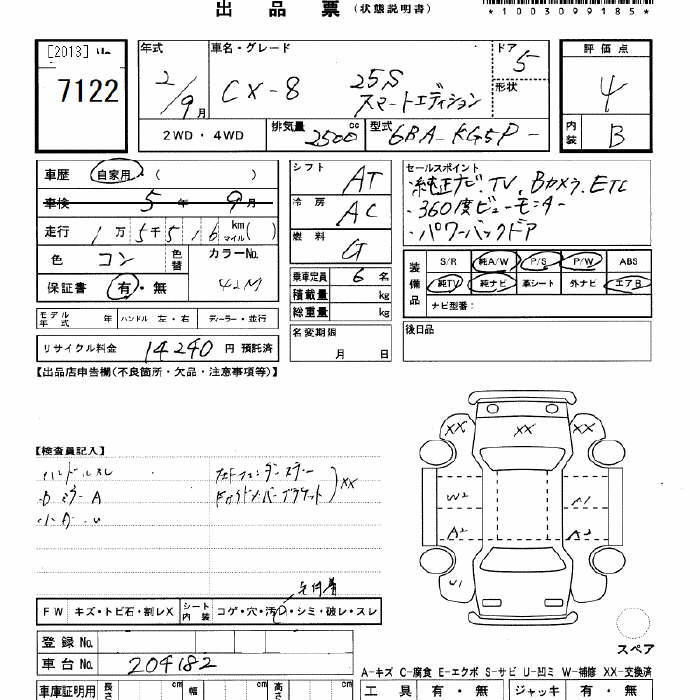 出品票 (状態説明書)
*1003099185*
[2013]
7122
年式 2/9月
車名・グレード CX-8 25S スマートエディション
ドア 5
形状
評価点 4
内装 B
2WD・4WD
排気量 2500 cc
型式 6BA-KG5P-
車歴 自家用 ( )
車検 5年 9月
走行 1万5千516 km マイル( )
色 コン 色替 カラーNo. 42M
保証書 有・無
シフト AT
冷房 AC
燃料 G
乗車定員 6名
積載量 kg
総重量 kg
セールスポイント
・純正ナビ.TV、Bカメラ.ETC
・360度ビューモニター
・パワーバックドア
装備品
S/R 純A/W P/S P/W ABS
純TV 純ナビ 革シート 外ナビ エアB
ナビ型番:
モデル年式 年 ハンドル 左・右 ディーラー・並行
名変期限 月 日
後日品
リサイクル料金 14240 円 預託済
【出品店申告欄(不良箇所・欠品・注意事項等)】
【検査員記入】
ハンドルスレ
XX
XX XX XX
W2
A2
U1
FW キズ・トビ石・割レX
シート内装 コゲ・穴・汚レ・シミ・破レ・スレ
登録No.
車台No. 204182
スペア
A-キズ C-腐食 E-エクボ S-サビ U-凹ミ W-補修 XX-交換済
車庫証明用 長さ cm 幅 cm 高さ cm
工具 有・無 ジャッキ 有・無